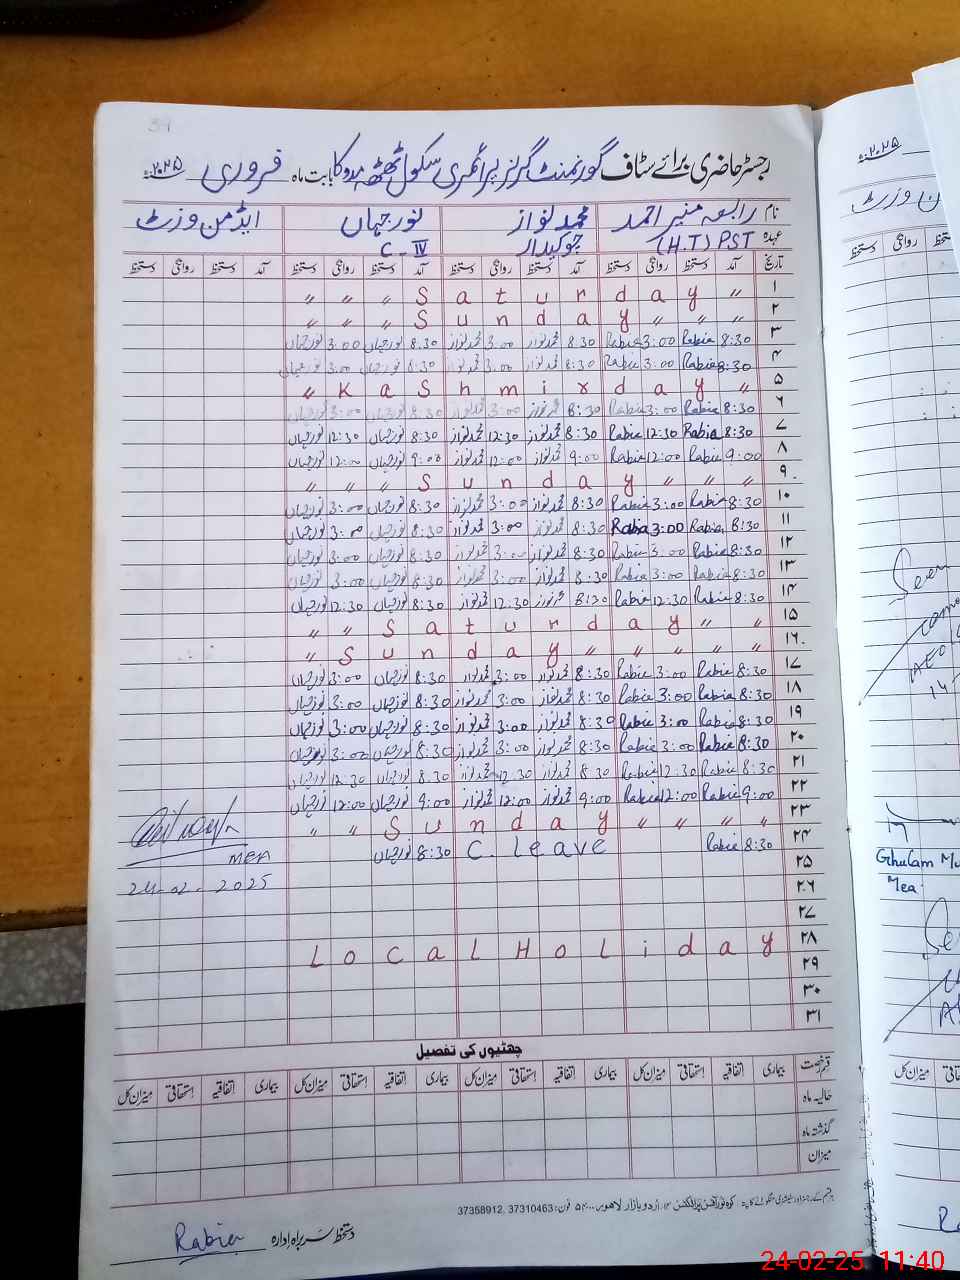 34
رجسٹر حاضری برائے سٹاف گورنمنٹ گرلز پرائمری سکول ٹھٹھہ مدوکا بابت ماہ فروری ۲۰۲۵ء
نام رابعہ منیر احمد محمد نواز نورجہاں ایڈمن وزٹ
عہدہ (H.T) PST چوکیدار C-IV
تاریخ آمد دستخط روانگی دستخط آمد دستخط روانگی دستخط آمد دستخط روانگی دستخط آمد دستخط روانگی دستخط
۱ 〃 〃 〃 S a t u r d a y 〃
۲ 〃 〃 〃 S u n d a y 〃 〃 〃
۳ 8:30 Rabie 3:00 Rabie 8:30 محمد نواز 3:00 محمد نواز 8:30 نورجہاں 3:00 نورجہاں
۴ 8:30 Rabie 3:00 Rabie 8:30 محمد نواز 3:00 محمد نواز 8:30 نورجہاں 3:00 نورجہاں
۵ 〃 K a S h m i r d a y 〃
۶ 8:30 Rabie 3:00 Rabie 8:30 محمد نواز 3:00 محمد نواز 8:30 نورجہاں 3:00 نورجہاں
۷ 8:30 Rabia 12:30 Rabie 8:30 محمد نواز 12:30 محمد نواز 8:30 نورجہاں 12:30 نورجہاں
۸ 9:00 Rabie 12:00 Rabie 9:00 محمد نواز 12:00 محمد نواز 9:00 نورجہاں 12:00 نورجہاں
۹ 〃 〃 〃 S u n d a y 〃 〃 〃
۱۰ 8:30 Rabie 3:00 Rabie 8:30 محمد نواز 3:00 محمد نواز 8:30 نورجہاں 3:00 نورجہاں
۱۱ 8:30 Rabia 3:00 Rabia 8:30 محمد نواز 3:00 محمد نواز 8:30 نورجہاں 3:00 نورجہاں
۱۲ 8:30 Rabie 3:00 Rabie 8:30 محمد نواز 3:00 محمد نواز 8:30 نورجہاں 3:00 نورجہاں
۱۳ 8:30 Rabie 3:00 Rabie 8:30 محمد نواز 3:00 محمد نواز 8:30 نورجہاں 3:00 نورجہاں
۱۴ 8:30 Rabie 12:30 Rabie 8:30 محمد نواز 12:30 محمد نواز 8:30 نورجہاں 12:30 نورجہاں
۱۵ 〃 〃 S a t u r d a y 〃 〃
۱۶ 〃 S u n d a y 〃 〃 〃 〃 〃
۱۷ 8:30 Rabie 3:00 Rabie 8:30 محمد نواز 3:00 محمد نواز 8:30 نورجہاں 3:00 نورجہاں
۱۸ 8:30 Rabie 3:00 Rabie 8:30 محمد نواز 3:00 محمد نواز 8:30 نورجہاں 3:00 نورجہاں
۱۹ 8:30 Rabie 3:00 Rabie 8:30 محمد نواز 3:00 محمد نواز 8:30 نورجہاں 3:00 نورجہاں
۲۰ 8:30 Rabie 3:00 Rabie 8:30 محمد نواز 3:00 محمد نواز 8:30 نورجہاں 3:00 نورجہاں
۲۱ 8:30 Rabie 12:30 Rabie 8:30 محمد نواز 12:30 محمد نواز 8:30 نورجہاں 12:30 نورجہاں
۲۲ 9:00 Rabie 12:00 Rabie 9:00 محمد نواز 12:00 محمد نواز 9:00 نورجہاں 12:00 نورجہاں
۲۳ 〃 〃 S u n d a y 〃 〃 〃 〃
۲۴ 8:30 Rabie C. leave 8:30 نورجہاں
MEA
24-02-2025
۲۵
۲۶
۲۷
۲۸ L o C a L H o L i d a y
۲۹
۳۰
۳۱
چھٹیوں کی تفصیل
قسم رخصت بیماری اتفاقیہ استحقاقی میزان کل بیماری اتفاقیہ استحقاقی میزان کل بیماری اتفاقیہ استحقاقی میزان کل بیماری اتفاقیہ استحقاقی میزان کل
حالیہ ماہ
گذشتہ ماہ
میزان
اردو بازار لاہور فون: 37310463, 37358912
دستخط سربراہ ادارہ Rabie
۲۰۲۵ء
وزٹ
روانگی
دستخط
Seen
AEO
14
Ghulam Mu
Mea
24-02-25 11:40